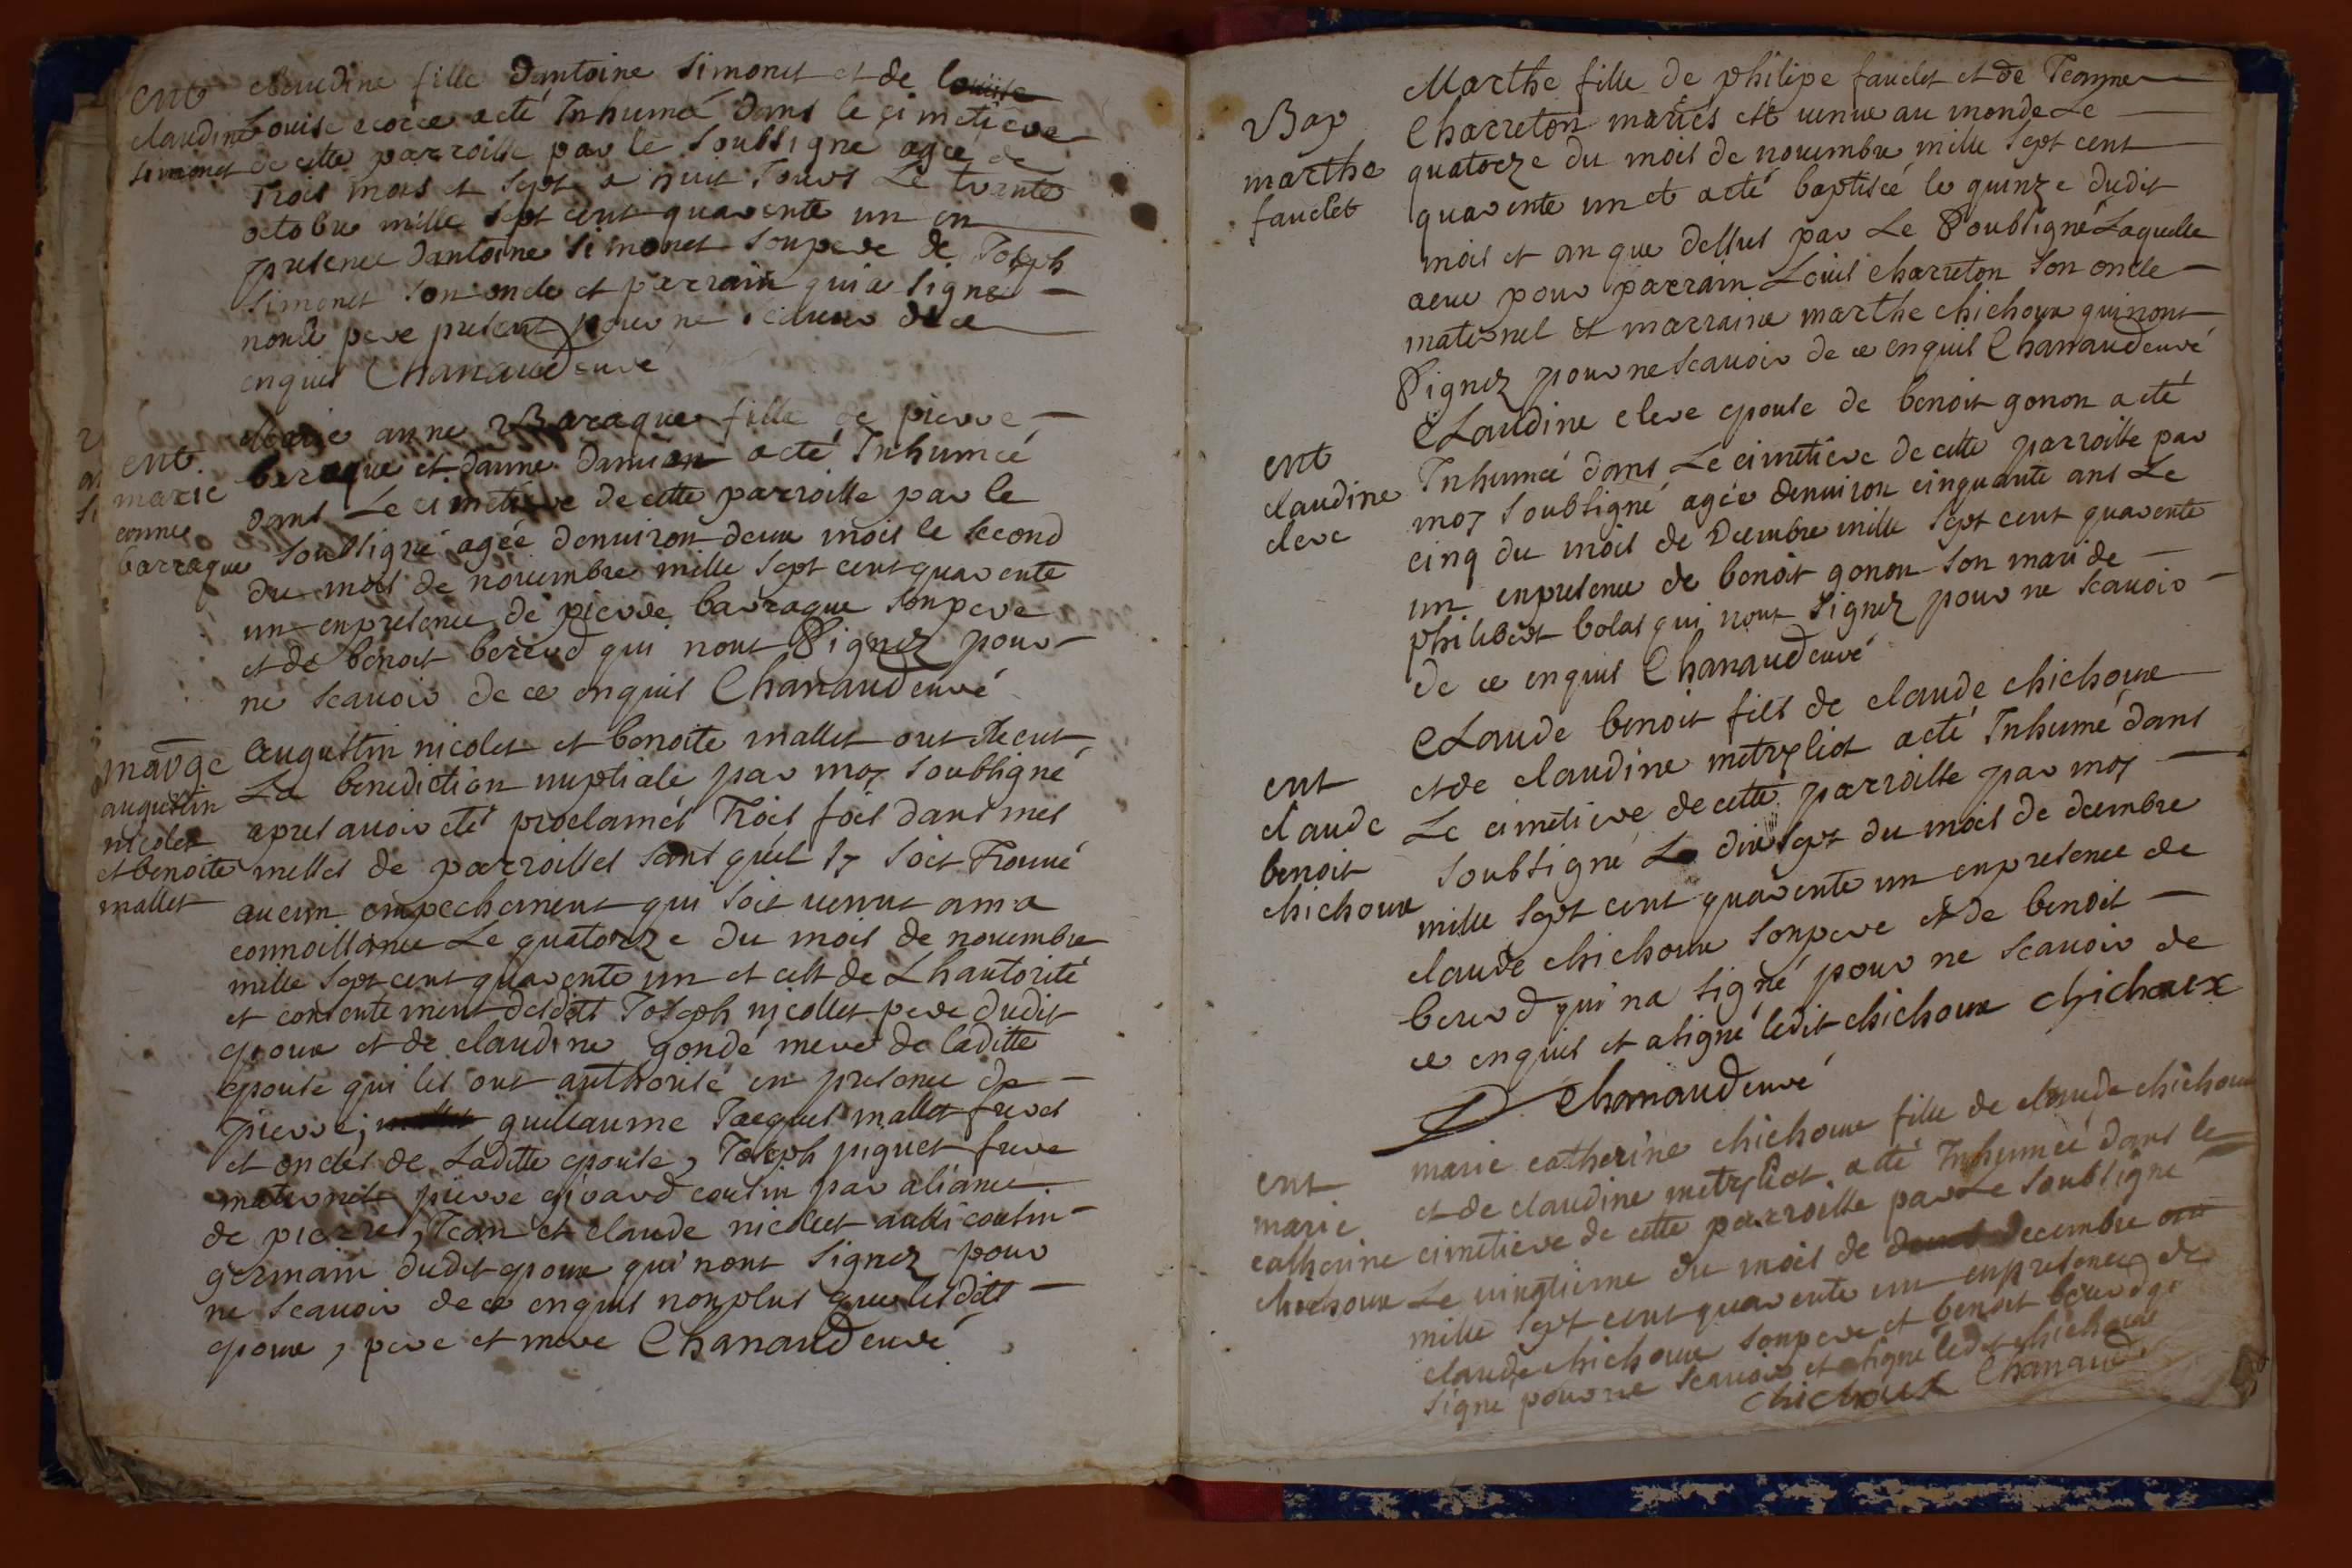 ent
claudine
simonet
claudine fille dantoine simonet et de louise
Louise acté Inhumé dans le cimetiere
de cette parroisse par le soubsigné agée de
trois mois et sept a huit Jours Le trente
octobre mille sept cent quarente un en
presence dantoine simonet son pere de Joseph
simonet son oncle et parrain qui a signé
non le pere present pour ne scavoir de ce
enquis Chanaud curé
ent
marie
anne
barraque
Marie anne Baraque fille de pierre
baraque et danne damian acté Inhumée
dans Le cimetiere de cette parroisse par le
soubsigné agée denuiron deux mois le second
du mois de nouembre mille sept cent quarente
un en presence de pierre barraque son pere
et de benoit bererd qui nont Signez pour
ne scauoir de ce enquis Chanaud curé
mariage
augustin
nicolet
et benoite
mallet
augustin nicolet et benoite mallet ont Receut
La benediction nuptiale par moy soubsigné
apres auoir eté proclamés Trois fois dans mes
messes de parroisses sans quil Iy soit Trouué
aucun empechement qui soit uenut a ma
connoissance Le quatorze du mois de nouembre
mille sept cent quarente un et cest de Lhautorité
et consentement desdits Joseph nicollet pere dudit
epoux et de claudine gonde mere de laditte
epouse qui les ont authorisé en presence de
pierre, guillaume Jacques mallet freres
et oncles de Laditte epouse, Joseph piguet frere
maternel pierre girard cousin par aliance
de pierre, Jean et claude nicolet aussi cousin
germain dudit epoux qui nont Signez pour
ne scauoir de ce enquis non plus que lesdits
epoux, pere et mere Chanaud curé
Bap
marthe
fauclet
Marthe fille de philipe fauclet et de Jeanne
Charreton mariés est uenue au monde Le
quatorze du mois de nouembre mille sept cent
quarente un et acté baptisée le quinze dudit
mois et an que dessus par Le Soubsigné Laquelle
aeu pour parrain Louis charreton son oncle
maternel et marraine marthe chichoux qui nont
Signez pour ne scauoir de ce enquis Chanaud curé
ent
claudine
cleve
CLaudine cleve epouse de benoit gonon acté
Inhumée dans Le cimetiere de cette parroisse par
moy soubsigné agée denuiron cinquante ans Le
cinq du mois de Decembre mille sept cent quarente
un en presence de benoit gonon son mari de
philibert bolas qui nont signez pour ne scauoir
de ce enquis Chanaud curé
ent
claude
benoit
chichoux
CLaude benoit fils de claude chichoux
et de claudine acté Inhumé dans
Le cimetiere de cette parroisse par moy
soubsigné Le dix sept du mois de decembre
mille sept cent quarente un en presence de
claude chichoux son pere et de benoit
bererd qui na signé pour ne scauoir de
ce enquis et a signé ledit chichoux chichoux
Chanaud curé
ent
marie
catherine
chichoux
marie catherine chichoux fille de claude chichoux
et de claudine acté Inhumée dans le
cimetiere de cette parroisse par Le soubsigné
Le uingtieme du mois de decembre
mille sept cent quarente un en presence de
claude chichoux son pere et benoit bererd
signé pour ne scauoir et a signé ledit chichoux
chichoux Chanaud